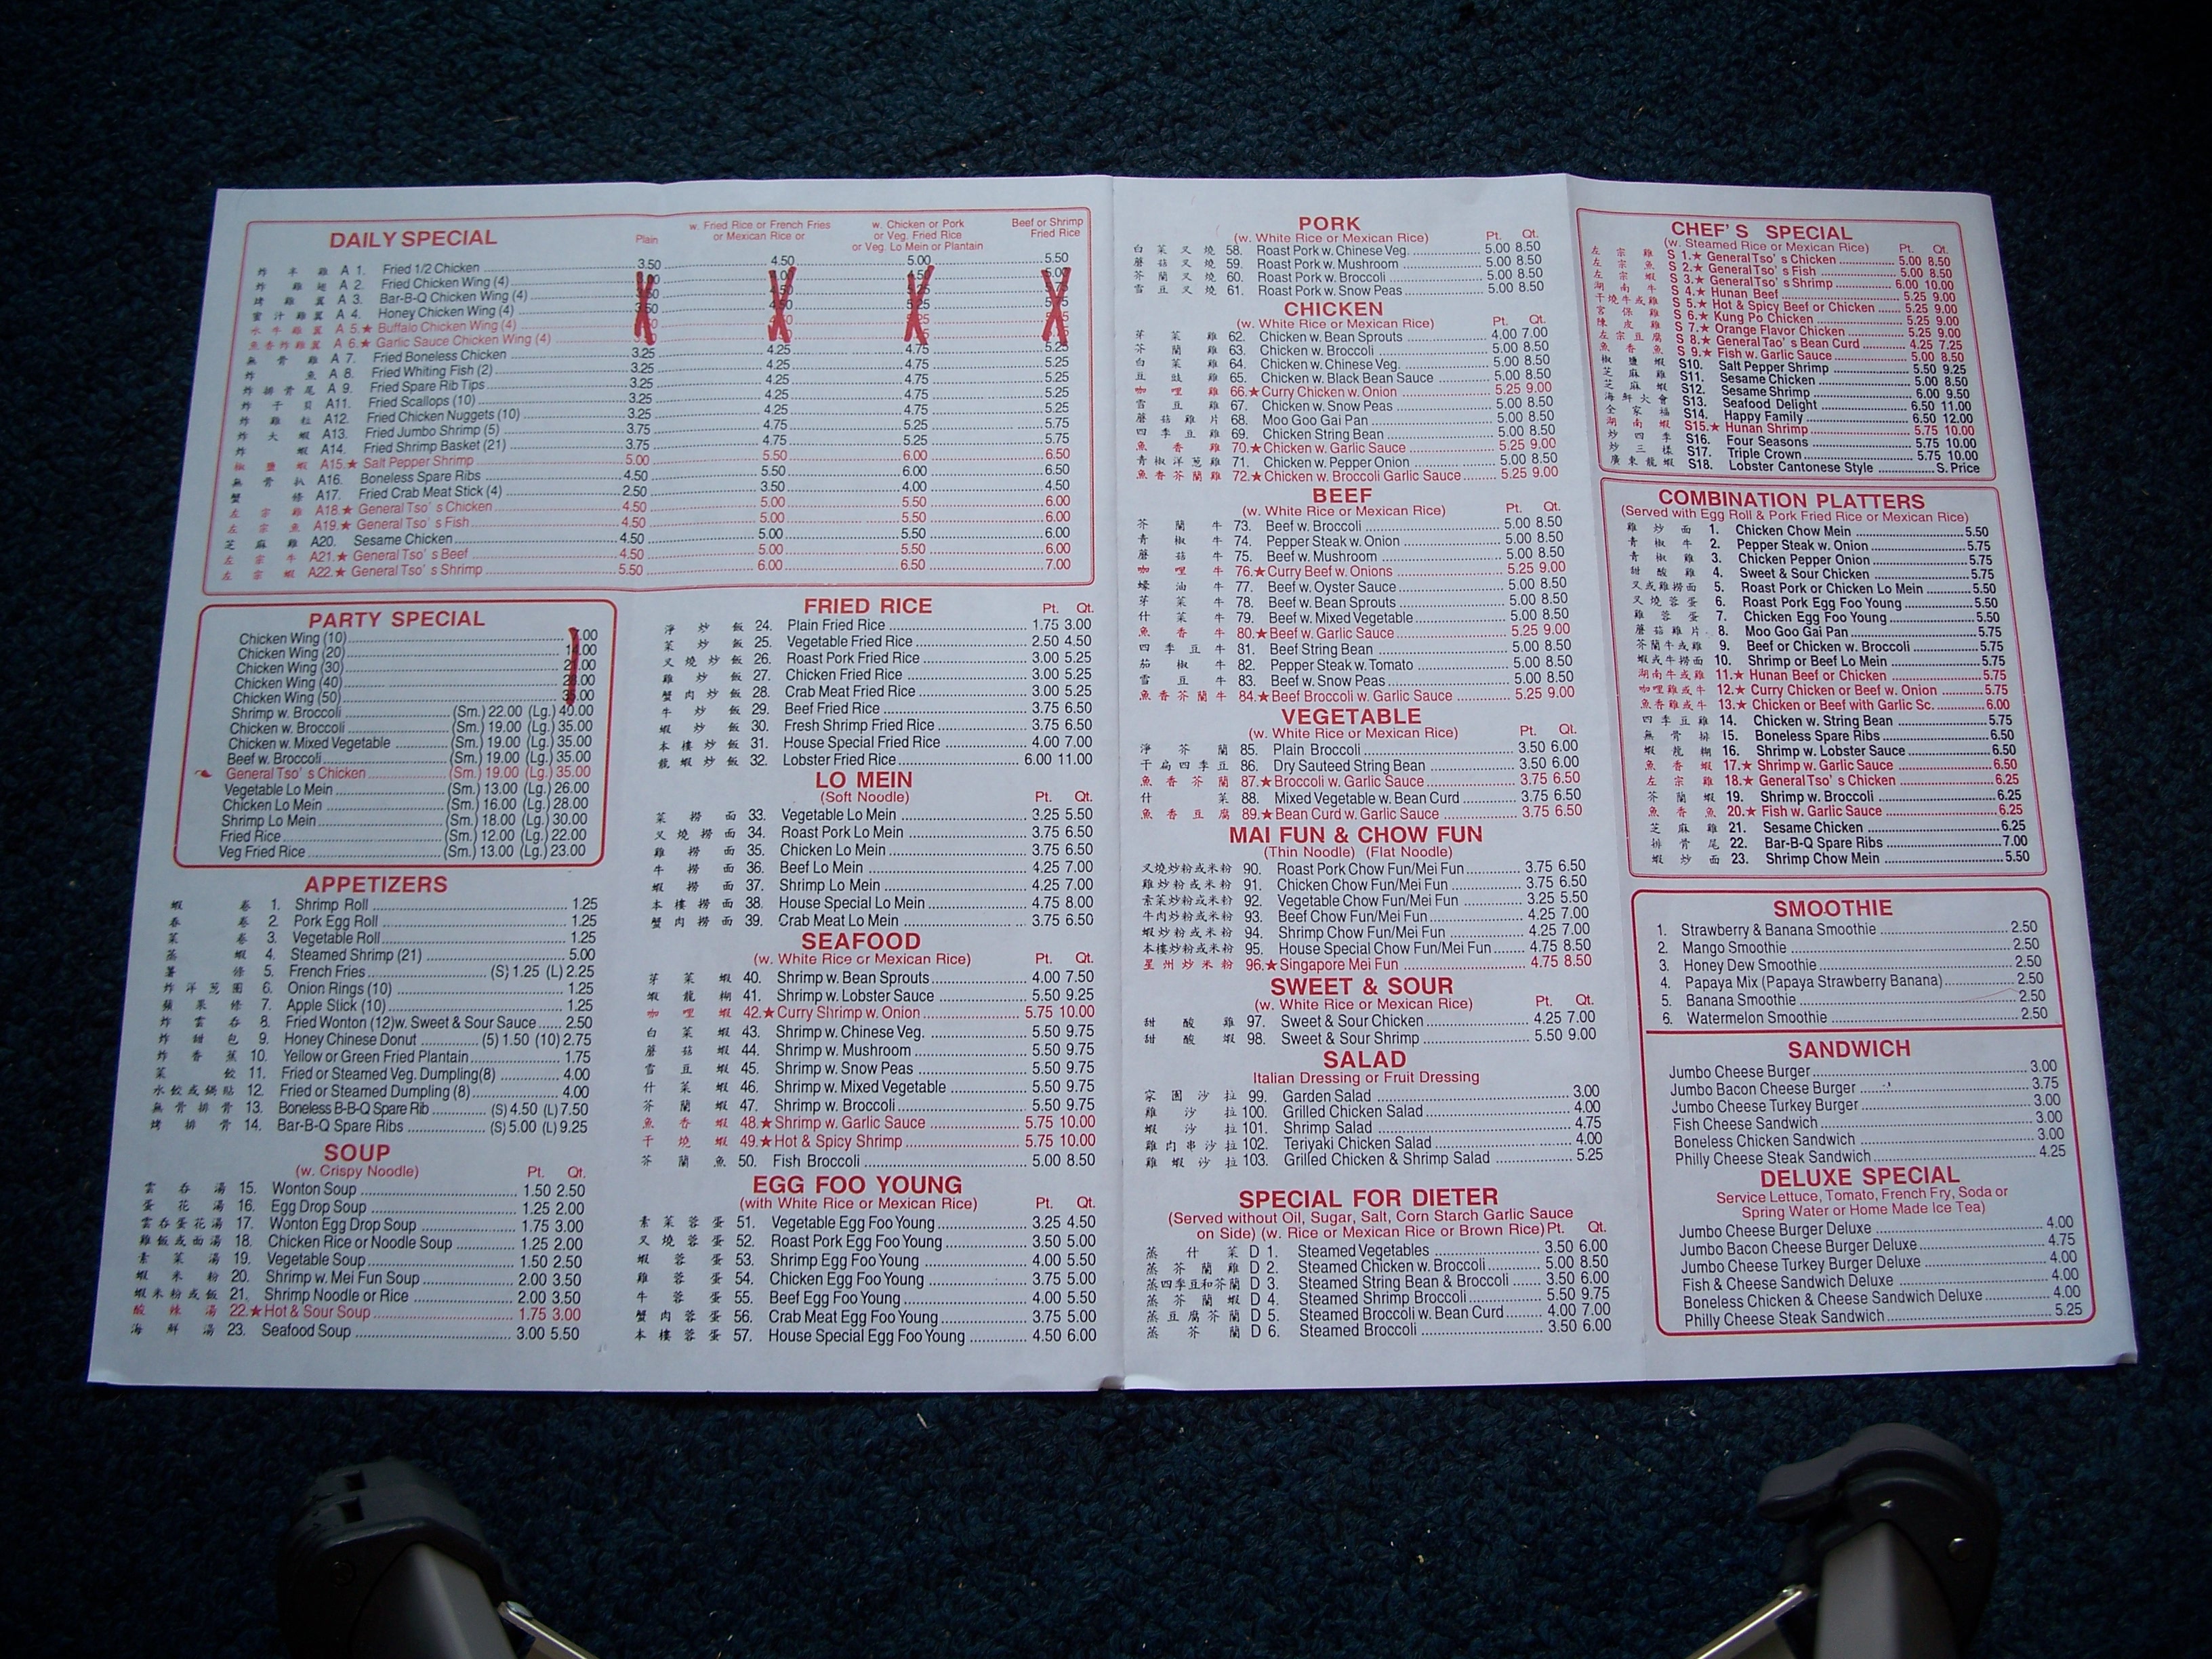 DAILY SPECIAL
Plain
w. Fried Rice or French Fries
or Mexican Rice or
w. Chicken or Pork
or Veg. Fried Rice
or Veg. Lo Mein or Plantain
Beef or Shrimp
Fried Rice
炸半雞 A 1. Fried 1/2 Chicken 3.50 4.50 5.00 5.50
炸雞翅 A 2. Fried Chicken Wing (4)
烤雞翼 A 3. Bar-B-Q Chicken Wing (4)
蜜汁雞翼 A 4. Honey Chicken Wing (4)
水牛雞翼 A 5.★ Buffalo Chicken Wing (4)
魚香炸雞翼 A 6.★ Garlic Sauce Chicken Wing (4)
無骨雞 A 7. Fried Boneless Chicken 3.25 4.25 4.75 5.25
炸魚 A 8. Fried Whiting Fish (2) 3.25 4.25 4.75 5.25
炸排骨尾 A 9. Fried Spare Rib Tips 3.25 4.25 4.75 5.25
炸干貝 A11. Fried Scallops (10) 3.25 4.25 4.75 5.25
炸雞粒 A12. Fried Chicken Nuggets (10) 3.25 4.25 4.75 5.25
炸大蝦 A13. Fried Jumbo Shrimp (5) 3.75 4.75 5.25 5.75
炸蝦 A14. Fried Shrimp Basket (21) 3.75 4.75 5.25 5.75
椒鹽蝦 A15.★ Salt Pepper Shrimp 5.00 5.50 6.00 6.50
無骨扒 A16. Boneless Spare Ribs 4.50 5.50 6.00 6.50
蟹條 A17. Fried Crab Meat Stick (4) 2.50 3.50 4.00 4.50
左宗雞 A18.★ General Tso's Chicken 4.50 5.00 5.50 6.00
左宗魚 A19.★ General Tso's Fish 4.50 5.00 5.50 6.00
芝麻雞 A20. Sesame Chicken 4.50 5.00 5.50 6.00
左宗牛 A21.★ General Tso's Beef 4.50 5.00 5.50 6.00
左宗蝦 A22.★ General Tso's Shrimp 5.50 6.00 6.50 7.00
PARTY SPECIAL
Chicken Wing (10) 7.00
Chicken Wing (20) 14.00
Chicken Wing (30) 21.00
Chicken Wing (40) 28.00
Chicken Wing (50) 35.00
Shrimp w. Broccoli (Sm.) 22.00 (Lg.) 40.00
Chicken w. Broccoli (Sm.) 19.00 (Lg.) 35.00
Chicken w. Mixed Vegetable (Sm.) 19.00 (Lg.) 35.00
Beef w. Broccoli (Sm.) 19.00 (Lg.) 35.00
General Tso's Chicken (Sm.) 19.00 (Lg.) 35.00
Vegetable Lo Mein (Sm.) 13.00 (Lg.) 26.00
Chicken Lo Mein (Sm.) 16.00 (Lg.) 28.00
Shrimp Lo Mein (Sm.) 18.00 (Lg.) 30.00
Fried Rice (Sm.) 12.00 (Lg.) 22.00
Veg Fried Rice (Sm.) 13.00 (Lg.) 23.00
APPETIZERS
蝦卷 1. Shrimp Roll 1.25
春卷 2. Pork Egg Roll 1.25
菜卷 3. Vegetable Roll 1.25
蒸蝦 4. Steamed Shrimp (21) 5.00
薯條 5. French Fries (S) 1.25 (L) 2.25
炸洋葱圈 6. Onion Rings (10) 1.25
蘋果條 7. Apple Stick (10) 1.25
炸雲吞 8. Fried Wonton (12)w. Sweet & Sour Sauce 2.50
炸甜包 9. Honey Chinese Donut (5) 1.50 (10) 2.75
炸香蕉 10. Yellow or Green Fried Plantain 1.75
菜餃 11. Fried or Steamed Veg. Dumpling(8) 4.00
水餃或鍋貼 12. Fried or Steamed Dumpling (8) 4.00
無骨排骨 13. Boneless B-B-Q Spare Rib (S) 4.50 (L) 7.50
烤排骨 14. Bar-B-Q Spare Ribs (S) 5.00 (L) 9.25
SOUP
(w. Crispy Noodle) Pt. Qt.
雲吞湯 15. Wonton Soup 1.50 2.50
蛋花湯 16. Egg Drop Soup 1.25 2.00
雲吞蛋花湯 17. Wonton Egg Drop Soup 1.75 3.00
雞飯或面湯 18. Chicken Rice or Noodle Soup 1.25 2.00
素菜湯 19. Vegetable Soup 1.50 2.50
蝦米粉 20. Shrimp w. Mei Fun Soup 2.00 3.50
蝦米粉或飯 21. Shrimp Noodle or Rice 2.00 3.50
酸辣湯 22.★Hot & Sour Soup 1.75 3.00
海鮮湯 23. Seafood Soup 3.00 5.50
FRIED RICE Pt. Qt.
淨炒飯 24. Plain Fried Rice 1.75 3.00
菜炒飯 25. Vegetable Fried Rice 2.50 4.50
叉燒炒飯 26. Roast Pork Fried Rice 3.00 5.25
雞炒飯 27. Chicken Fried Rice 3.00 5.25
蟹肉炒飯 28. Crab Meat Fried Rice 3.00 5.25
牛炒飯 29. Beef Fried Rice 3.75 6.50
蝦炒飯 30. Fresh Shrimp Fried Rice 3.75 6.50
本樓炒飯 31. House Special Fried Rice 4.00 7.00
龍蝦炒飯 32. Lobster Fried Rice 6.00 11.00
LO MEIN
(Soft Noodle) Pt. Qt.
菜撈面 33. Vegetable Lo Mein 3.25 5.50
叉燒撈面 34. Roast Pork Lo Mein 3.75 6.50
雞撈面 35. Chicken Lo Mein 3.75 6.50
牛撈面 36. Beef Lo Mein 4.25 7.00
蝦撈面 37. Shrimp Lo Mein 4.25 7.00
本樓撈面 38. House Special Lo Mein 4.75 8.00
蟹肉撈面 39. Crab Meat Lo Mein 3.75 6.50
SEAFOOD
(w. White Rice or Mexican Rice) Pt. Qt.
芽菜蝦 40. Shrimp w. Bean Sprouts 4.00 7.50
蝦龍糊 41. Shrimp w. Lobster Sauce 5.50 9.25
咖哩蝦 42.★Curry Shrimp w. Onion 5.75 10.00
白菜蝦 43. Shrimp w. Chinese Veg. 5.50 9.75
蘑菇蝦 44. Shrimp w. Mushroom 5.50 9.75
雪豆蝦 45. Shrimp w. Snow Peas 5.50 9.75
什菜蝦 46. Shrimp w. Mixed Vegetable 5.50 9.75
芥蘭蝦 47. Shrimp w. Broccoli 5.50 9.75
魚香蝦 48.★Shrimp w. Garlic Sauce 5.75 10.00
干燒蝦 49.★Hot & Spicy Shrimp 5.75 10.00
芥蘭魚 50. Fish Broccoli 5.00 8.50
EGG FOO YOUNG
(with White Rice or Mexican Rice) Pt. Qt.
素菜蓉蛋 51. Vegetable Egg Foo Young 3.25 4.50
叉燒蓉蛋 52. Roast Pork Egg Foo Young 3.50 5.00
蝦蓉蛋 53. Shrimp Egg Foo Young 4.00 5.50
雞蓉蛋 54. Chicken Egg Foo Young 3.75 5.00
牛蓉蛋 55. Beef Egg Foo Young 4.00 5.50
蟹肉蓉蛋 56. Crab Meat Egg Foo Young 3.75 5.00
本樓蓉蛋 57. House Special Egg Foo Young 4.50 6.00
PORK
(w. White Rice or Mexican Rice) Pt. Qt.
白菜叉燒 58. Roast Pork w. Chinese Veg. 5.00 8.50
蘑菇叉燒 59. Roast Pork w. Mushroom 5.00 8.50
芥蘭叉燒 60. Roast Pork w. Broccoli 5.00 8.50
雪豆叉燒 61. Roast Pork w. Snow Peas 5.00 8.50
CHICKEN
(w. White Rice or Mexican Rice) Pt. Qt.
芽菜雞 62. Chicken w. Bean Sprouts 4.00 7.00
芥蘭雞 63. Chicken w. Broccoli 5.00 8.50
白菜雞 64. Chicken w. Chinese Veg. 5.00 8.50
豆豉雞 65. Chicken w. Black Bean Sauce 5.00 8.50
咖哩雞 66.★Curry Chicken w. Onion 5.25 9.00
雪豆雞 67. Chicken w. Snow Peas 5.00 8.50
蘑菇雞片 68. Moo Goo Gai Pan 5.00 8.50
四季豆雞 69. Chicken String Bean 5.00 8.50
魚香雞 70.★Chicken w. Garlic Sauce 5.25 9.00
青椒洋葱雞 71. Chicken w. Pepper Onion 5.00 8.50
魚香芥蘭雞 72.★Chicken w. Broccoli Garlic Sauce 5.25 9.00
BEEF
(w. White Rice or Mexican Rice) Pt. Qt.
芥蘭牛 73. Beef w. Broccoli 5.00 8.50
青椒牛 74. Pepper Steak w. Onion 5.00 8.50
蘑菇牛 75. Beef w. Mushroom 5.00 8.50
咖哩牛 76.★Curry Beef w. Onions 5.25 9.00
蠔油牛 77. Beef w. Oyster Sauce 5.00 8.50
芽菜牛 78. Beef w. Bean Sprouts 5.00 8.50
什菜牛 79. Beef w. Mixed Vegetable 5.00 8.50
魚香牛 80.★Beef w. Garlic Sauce 5.25 9.00
四季豆牛 81. Beef String Bean 5.00 8.50
茄椒牛 82. Pepper Steak w. Tomato 5.00 8.50
雪豆牛 83. Beef w. Snow Peas 5.00 8.50
魚香芥蘭牛 84.★Beef Broccoli w. Garlic Sauce 5.25 9.00
VEGETABLE
(w. White Rice or Mexican Rice) Pt. Qt.
淨芥蘭 85. Plain Broccoli 3.50 6.00
干扁四季豆 86. Dry Sauteed String Bean 3.50 6.00
魚香芥蘭 87.★Broccoli w. Garlic Sauce 3.75 6.50
什菜 88. Mixed Vegetable w. Bean Curd 3.75 6.50
魚香豆腐 89.★Bean Curd w. Garlic Sauce 3.75 6.50
MAI FUN & CHOW FUN
(Thin Noodle) (Flat Noodle)
叉燒炒粉或米粉 90. Roast Pork Chow Fun/Mei Fun 3.75 6.50
雞炒粉或米粉 91. Chicken Chow Fun/Mei Fun 3.75 6.50
素菜炒粉或米粉 92. Vegetable Chow Fun/Mei Fun 3.25 5.50
牛肉炒粉或米粉 93. Beef Chow Fun/Mei Fun 4.25 7.00
蝦炒粉或米粉 94. Shrimp Chow Fun/Mei Fun 4.25 7.00
本樓炒粉或米粉 95. House Special Chow Fun/Mei Fun 4.75 8.50
星州炒米粉 96.★Singapore Mei Fun 4.75 8.50
SWEET & SOUR
(w. White Rice or Mexican Rice) Pt. Qt.
甜酸雞 97. Sweet & Sour Chicken 4.25 7.00
甜酸蝦 98. Sweet & Sour Shrimp 5.50 9.00
SALAD
Italian Dressing or Fruit Dressing
家園沙拉 99. Garden Salad 3.00
雞沙拉 100. Grilled Chicken Salad 4.00
蝦沙拉 101. Shrimp Salad 4.75
雞肉串沙拉 102. Teriyaki Chicken Salad 4.00
雞蝦沙拉 103. Grilled Chicken & Shrimp Salad 5.25
SPECIAL FOR DIETER
(Served without Oil, Sugar, Salt, Corn Starch Garlic Sauce
on Side) (w. Rice or Mexican Rice or Brown Rice) Pt. Qt.
蒸什菜 D 1. Steamed Vegetables 3.50 6.00
蒸芥蘭雞 D 2. Steamed Chicken w. Broccoli 5.00 8.50
蒸四季豆和芥蘭 D 3. Steamed String Bean & Broccoli 3.50 6.00
蒸芥蘭蝦 D 4. Steamed Shrimp Broccoli 5.50 9.75
蒸豆腐芥蘭 D 5. Steamed Broccoli w. Bean Curd 4.00 7.00
蒸芥蘭 D 6. Steamed Broccoli 3.50 6.00
CHEF'S SPECIAL
(w. Steamed Rice or Mexican Rice) Pt. Qt.
左宗雞 S 1.★ General Tso's Chicken 5.00 8.50
左宗魚 S 2.★ General Tso's Fish 5.00 8.50
左宗蝦 S 3.★ General Tso's Shrimp 6.00 10.00
湖南牛 S 4.★ Hunan Beef 5.25 9.00
干燒牛或雞 S 5.★ Hot & Spicy Beef or Chicken 5.25 9.00
宮保雞 S 6.★ Kung Po Chicken 5.25 9.00
陳皮雞 S 7.★ Orange Flavor Chicken 5.25 9.00
左宗豆腐 S 8.★ General Tao's Bean Curd 4.25 7.25
魚香魚 S 9.★ Fish w. Garlic Sauce 5.00 8.50
椒鹽蝦 S10. Salt Pepper Shrimp 5.50 9.25
芝麻雞 S11. Sesame Chicken 5.00 8.50
芝麻蝦 S12. Sesame Shrimp 6.00 9.50
海鮮大會 S13. Seafood Delight 6.50 11.00
全家福 S14. Happy Family 6.50 12.00
湖南蝦 S15.★ Hunan Shrimp 5.75 10.00
炒四季 S16. Four Seasons 5.75 10.00
炒三樣 S17. Triple Crown 5.75 10.00
廣東龍蝦 S18. Lobster Cantonese Style S. Price
COMBINATION PLATTERS
(Served with Egg Roll & Pork Fried Rice or Mexican Rice)
雞炒面 1. Chicken Chow Mein 5.50
青椒牛 2. Pepper Steak w. Onion 5.75
青椒雞 3. Chicken Pepper Onion 5.75
甜酸雞 4. Sweet & Sour Chicken 5.75
叉或雞撈面 5. Roast Pork or Chicken Lo Mein 5.50
叉燒蓉蛋 6. Roast Pork Egg Foo Young 5.50
雞蓉蛋 7. Chicken Egg Foo Young 5.50
蘑菇雞片 8. Moo Goo Gai Pan 5.75
芥蘭牛或雞 9. Beef or Chicken w. Broccoli 5.75
蝦或牛撈面 10. Shrimp or Beef Lo Mein 5.75
湖南牛或雞 11.★ Hunan Beef or Chicken 5.75
咖哩雞或牛 12.★ Curry Chicken or Beef w. Onion 5.75
魚香雞或牛 13.★ Chicken or Beef with Garlic Sc. 6.00
四季豆雞 14. Chicken w. String Bean 5.75
無骨排 15. Boneless Spare Ribs 6.50
蝦龍糊 16. Shrimp w. Lobster Sauce 6.50
魚香蝦 17.★ Shrimp w. Garlic Sauce 6.50
左宗雞 18.★ General Tso's Chicken 6.25
芥蘭蝦 19. Shrimp w. Broccoli 6.25
魚香魚 20.★ Fish w. Garlic Sauce 6.25
芝麻雞 21. Sesame Chicken 6.25
排骨尾 22. Bar-B-Q Spare Ribs 7.00
蝦炒面 23. Shrimp Chow Mein 5.50
SMOOTHIE
1. Strawberry & Banana Smoothie 2.50
2. Mango Smoothie 2.50
3. Honey Dew Smoothie 2.50
4. Papaya Mix (Papaya Strawberry Banana) 2.50
5. Banana Smoothie 2.50
6. Watermelon Smoothie 2.50
SANDWICH
Jumbo Cheese Burger 3.00
Jumbo Bacon Cheese Burger 3.75
Jumbo Cheese Turkey Burger 3.00
Fish Cheese Sandwich 3.00
Boneless Chicken Sandwich 3.00
Philly Cheese Steak Sandwich 4.25
DELUXE SPECIAL
Service Lettuce, Tomato, French Fry, Soda or
Spring Water or Home Made Ice Tea)
Jumbo Cheese Burger Deluxe 4.00
Jumbo Bacon Cheese Burger Deluxe 4.75
Jumbo Cheese Turkey Burger Deluxe 4.00
Fish & Cheese Sandwich Deluxe 4.00
Boneless Chicken & Cheese Sandwich Deluxe 4.00
Philly Cheese Steak Sandwich 5.25